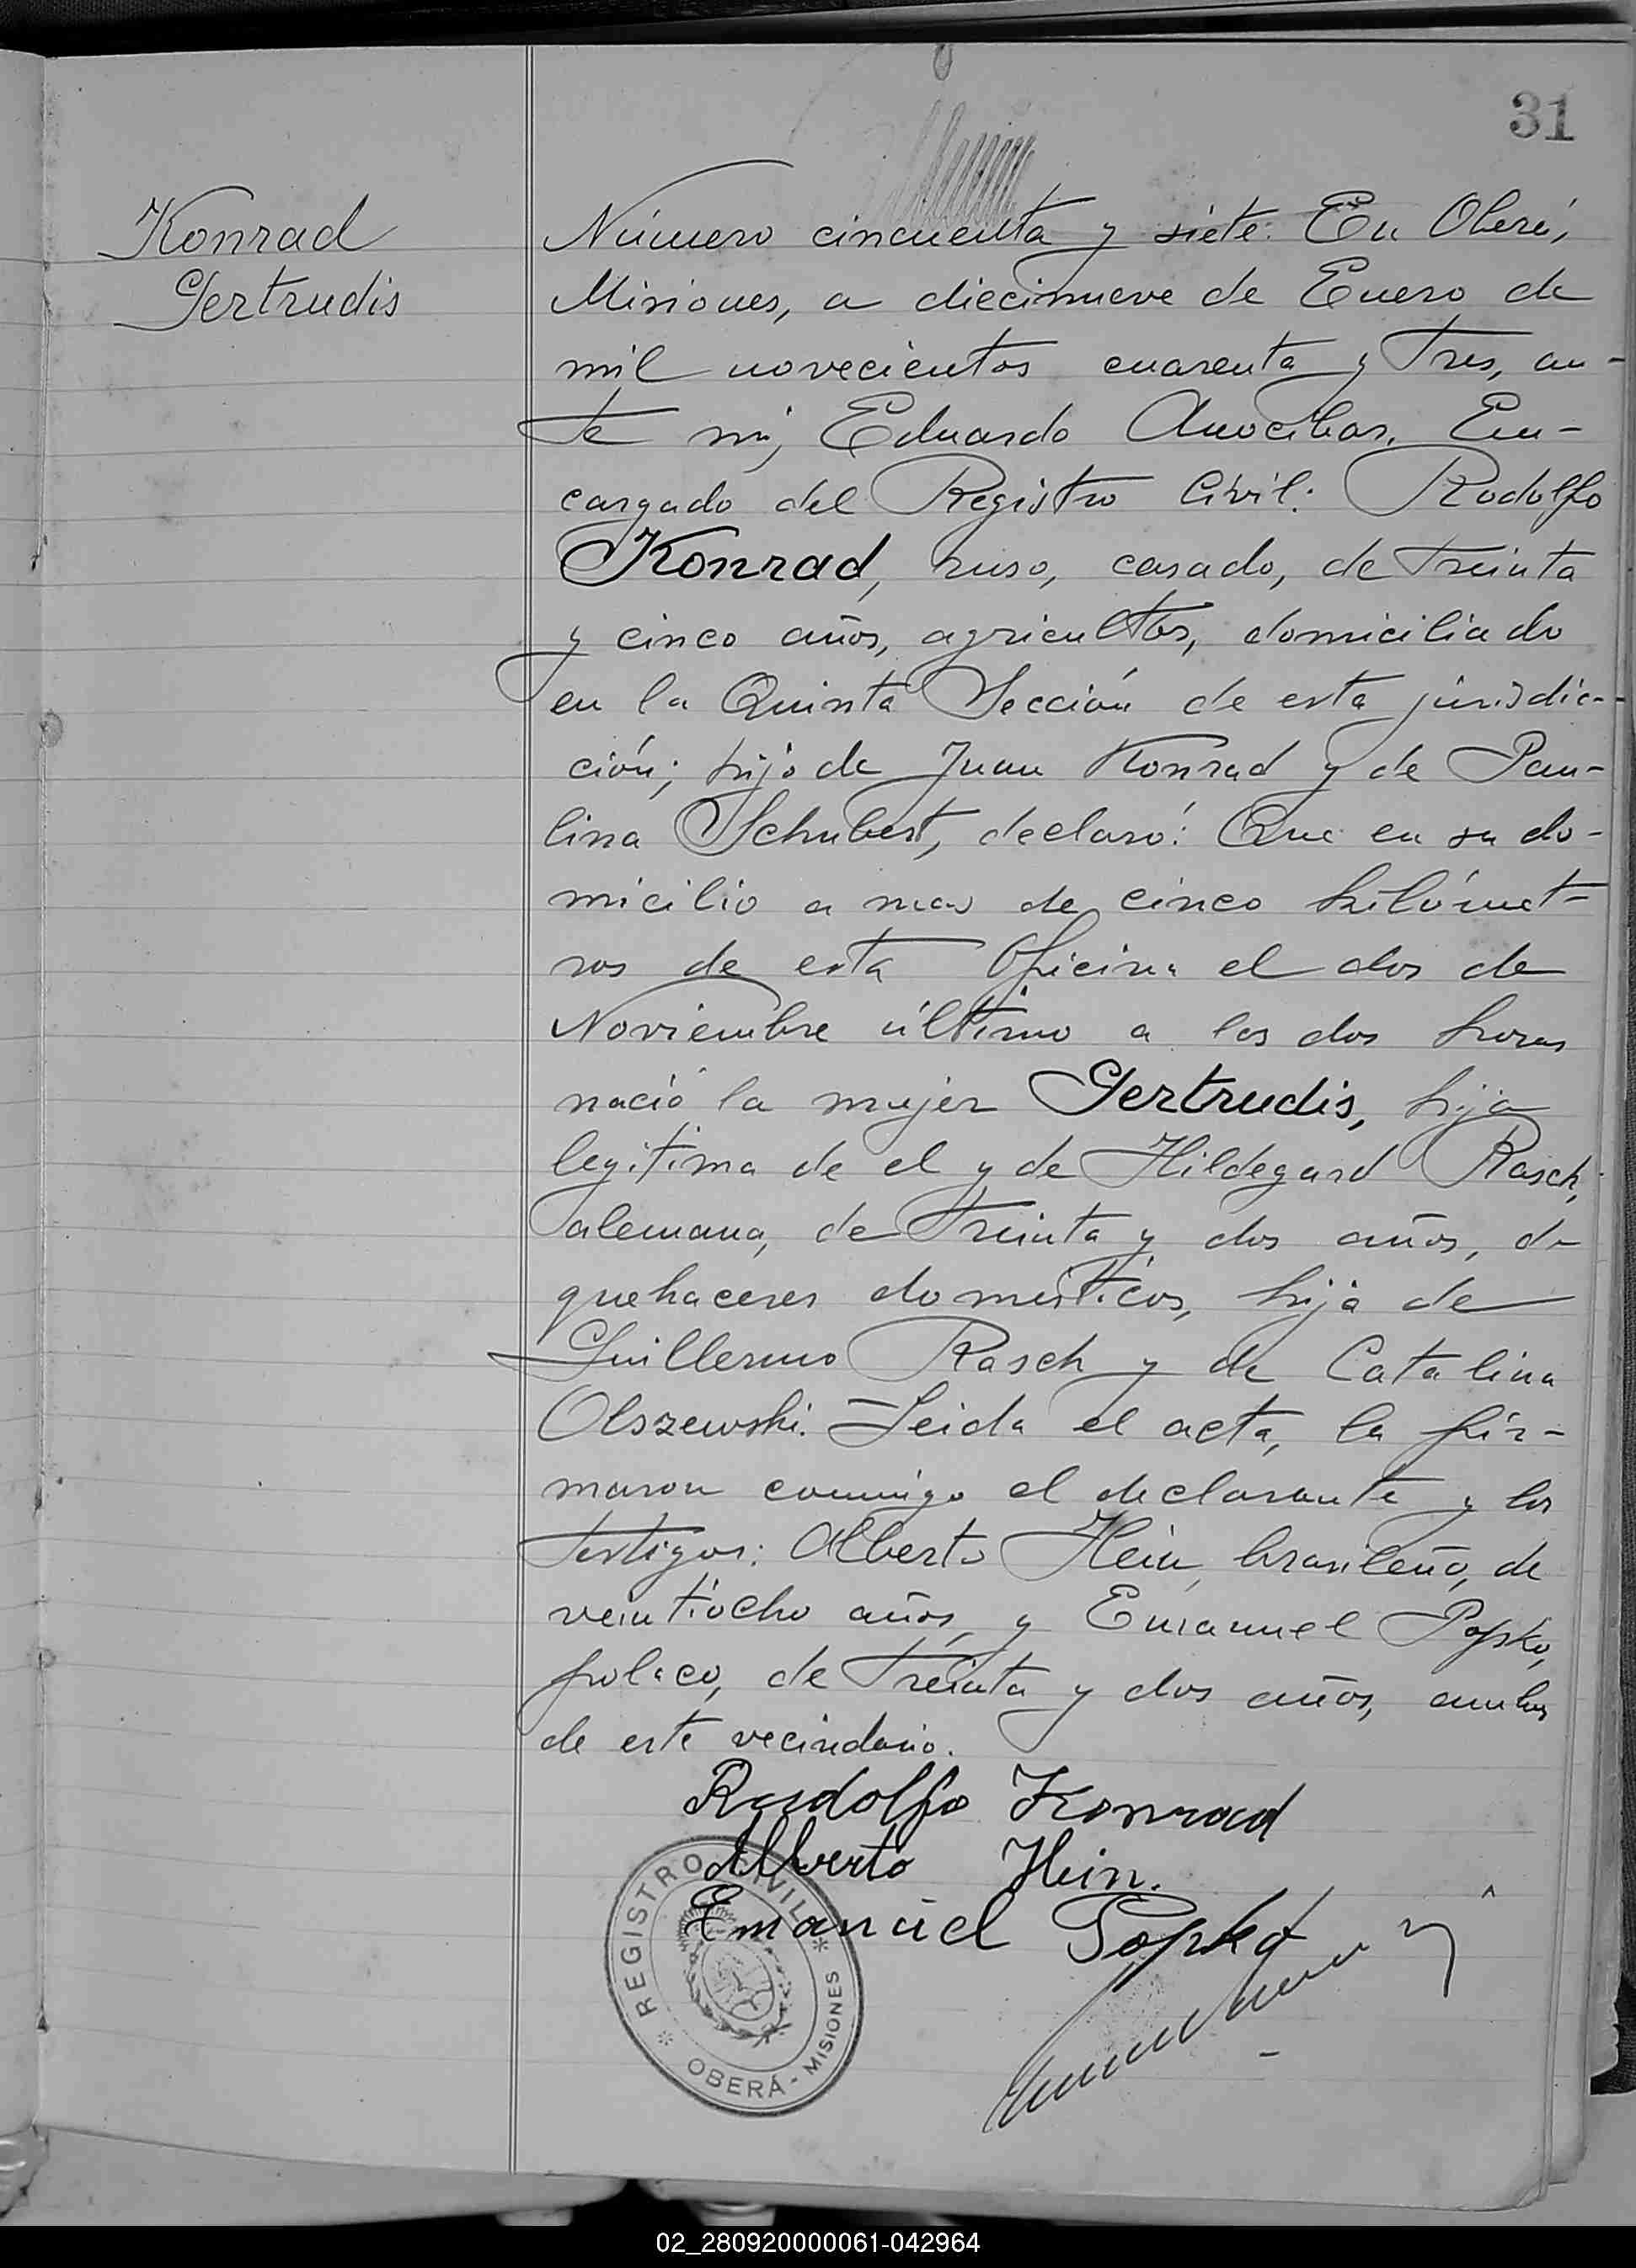 31
Konrad
Gertrudis
Número cincuenta y siete: En Oberá,
Misiones, a diecinueve de Enero de
mil novecientos cuarenta y tres, an-
te mi, Eduardo Anocibar, En-
cargado del Registro Civil: Rodolfo
Konrad, ruso, casado, de treinta
y cinco años, agricultor, domiciliado
en la Quinta Sección de esta jurisdic-
ción; hijo de Juan Konrad y de Pau-
lina Schubert, declaró: Que en su do-
micilio a mas de cinco kilómet-
ros de esta Oficina el dos de
Noviembre último a las dos horas
nació la mujer Gertrudis, hija
legitima de el y de Hildegard Rasch,
alemana, de treinta y dos años, de
quehaceres domésticos, hija de
Guillermo Rasch y de Catalina
Olszewski. Leida el acta, la fir-
maron conmigo el declarante y los
testigos: Alberto Hein, brasileño, de
veintiocho años, y Emanuel Popko,
polaco, de treinta y dos años, ambos
de este vecindario.
Rudolfo Konrad
Alberto Hein.
Emanuel Popko
REGISTRO CIVIL
OBERÁ - MISIONES
02_280920000061-042964